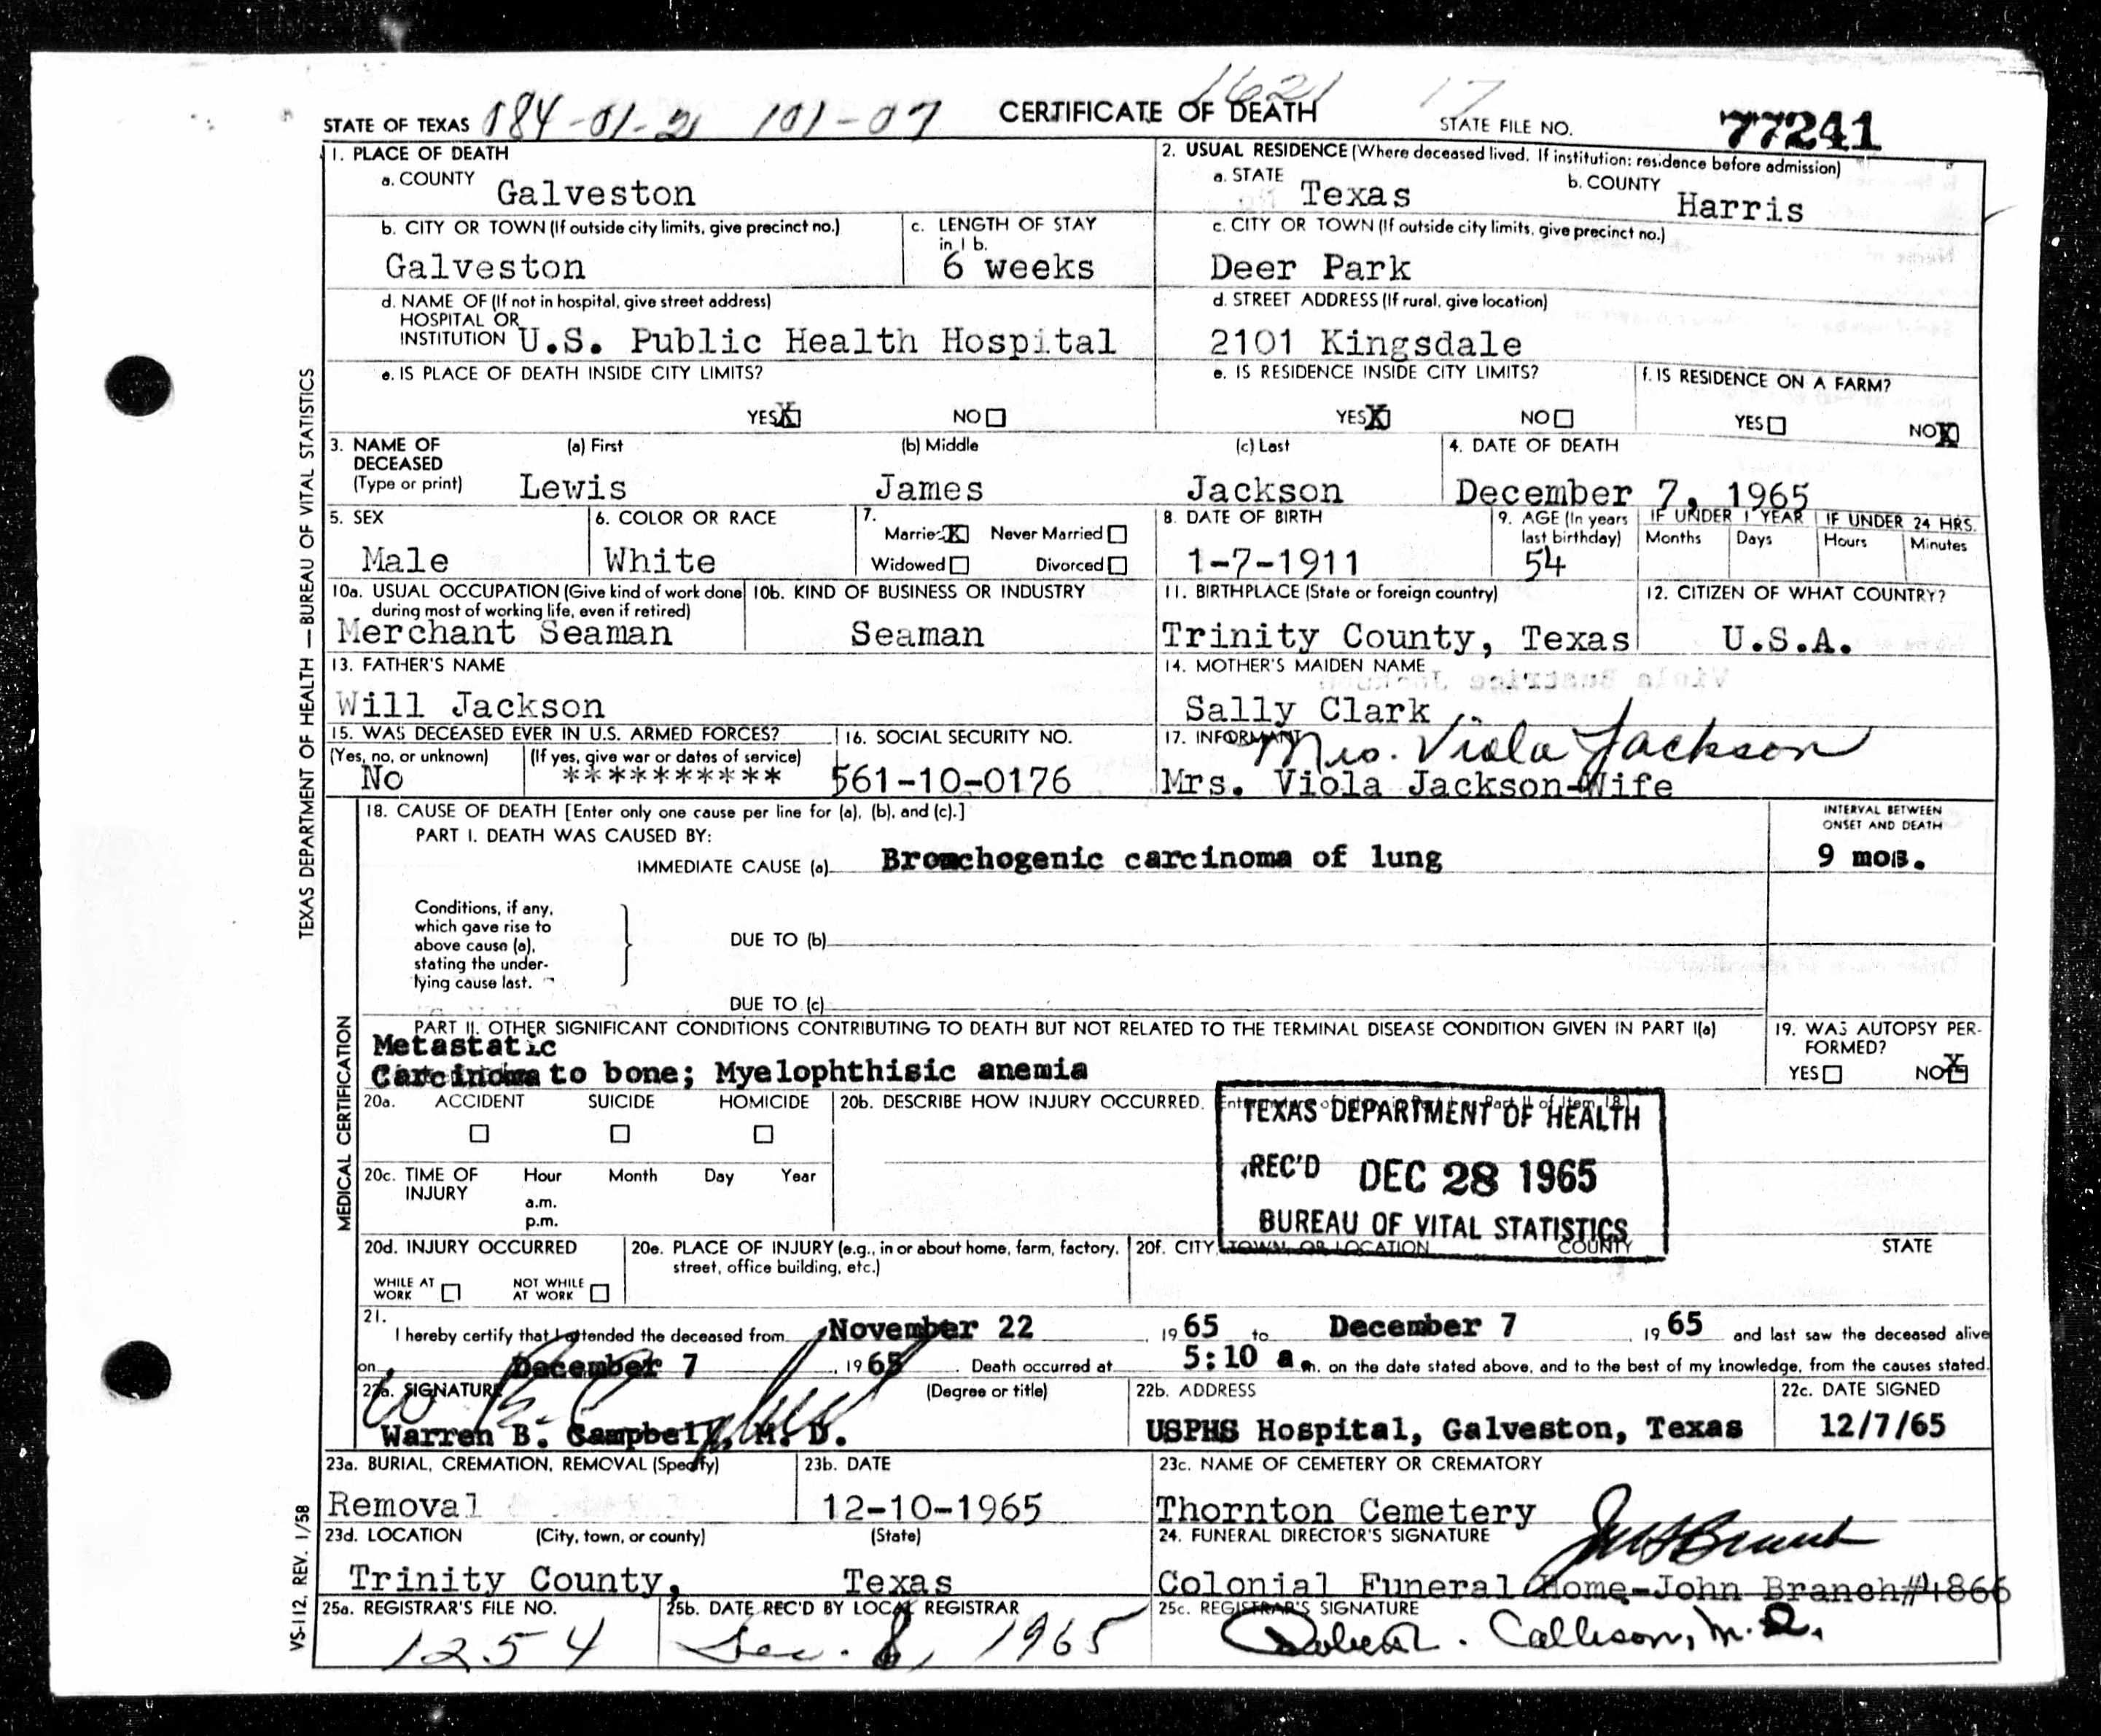 1621 17
STATE OF TEXAS 084-01-21 101-07 CERTIFICATE OF DEATH STATE FILE NO. 77241
1. PLACE OF DEATH
a. COUNTY Galveston
2. USUAL RESIDENCE (Where deceased lived. If institution: residence before admission)
a. STATE Texas b. COUNTY Harris
b. CITY OR TOWN (If outside city limits, give precinct no.) c. LENGTH OF STAY in 1 b.
Galveston 6 weeks
c. CITY OR TOWN (If outside city limits, give precinct no.)
Deer Park
d. NAME OF (If not in hospital, give street address)
HOSPITAL OR
INSTITUTION U.S. Public Health Hospital
d. STREET ADDRESS (If rural, give location)
2101 Kingsdale
e. IS PLACE OF DEATH INSIDE CITY LIMITS?
YES X NO
e. IS RESIDENCE INSIDE CITY LIMITS?
YES X NO
f. IS RESIDENCE ON A FARM?
YES NO X
3. NAME OF DECEASED (Type or print) (a) First (b) Middle (c) Last
Lewis James Jackson
4. DATE OF DEATH
December 7, 1965
5. SEX
Male
6. COLOR OR RACE
White
7.
Married X Never Married
Widowed Divorced
8. DATE OF BIRTH
1-7-1911
9. AGE (In years last birthday)
54
IF UNDER 1 YEAR
Months Days
IF UNDER 24 HRS.
Hours Minutes
10a. USUAL OCCUPATION (Give kind of work done during most of working life, even if retired)
Merchant Seaman
10b. KIND OF BUSINESS OR INDUSTRY
Seaman
11. BIRTHPLACE (State or foreign country)
Trinity County, Texas
12. CITIZEN OF WHAT COUNTRY?
U.S.A.
13. FATHER'S NAME
Will Jackson
14. MOTHER'S MAIDEN NAME
Sally Clark
15. WAS DECEASED EVER IN U.S. ARMED FORCES?
(Yes, no, or unknown) (If yes, give war or dates of service)
No **********
16. SOCIAL SECURITY NO.
561-10-0176
17. INFORMANT Mrs. Viola Jackson
Mrs. Viola Jackson-Wife
18. CAUSE OF DEATH [Enter only one cause per line for (a), (b), and (c).]
PART I. DEATH WAS CAUSED BY:
IMMEDIATE CAUSE (a) Bronchogenic carcinoma of lung
INTERVAL BETWEEN ONSET AND DEATH
9 mos.
Conditions, if any, which gave rise to above cause (a), stating the underlying cause last.
DUE TO (b)
DUE TO (c)
PART II. OTHER SIGNIFICANT CONDITIONS CONTRIBUTING TO DEATH BUT NOT RELATED TO THE TERMINAL DISEASE CONDITION GIVEN IN PART I(a)
Metastatic
Carcinoma to bone; Myelophthisic anemia
19. WAS AUTOPSY PERFORMED?
YES NO X
20a. ACCIDENT SUICIDE HOMICIDE
20b. DESCRIBE HOW INJURY OCCURRED.
TEXAS DEPARTMENT OF HEALTH
REC'D DEC 28 1965
BUREAU OF VITAL STATISTICS
20c. TIME OF INJURY Hour Month Day Year
a.m.
p.m.
20d. INJURY OCCURRED
WHILE AT WORK NOT WHILE AT WORK
20e. PLACE OF INJURY (e.g., in or about home, farm, factory, street, office building, etc.)
20f. CITY, TOWN, OR LOCATION COUNTY STATE
21.
I hereby certify that I attended the deceased from November 22, 1965 to December 7, 1965 and last saw the deceased alive
on December 7, 1965. Death occurred at 5:10 a.m. on the date stated above, and to the best of my knowledge, from the causes stated.
22a. SIGNATURE (Degree or title)
Warren B. Campbell, M. D.
22b. ADDRESS
USPHS Hospital, Galveston, Texas
22c. DATE SIGNED
12/7/65
23a. BURIAL, CREMATION, REMOVAL (Specify)
Removal
23b. DATE
12-10-1965
23c. NAME OF CEMETERY OR CREMATORY
Thornton Cemetery
23d. LOCATION (City, town, or county) (State)
Trinity County, Texas
24. FUNERAL DIRECTOR'S SIGNATURE
Colonial Funeral Home-John Branch#4866
25a. REGISTRAR'S FILE NO.
1254
25b. DATE REC'D BY LOCAL REGISTRAR
Dec. 8, 1965
25c. REGISTRAR'S SIGNATURE
Callison, M.D.
TEXAS DEPARTMENT OF HEALTH — BUREAU OF VITAL STATISTICS
MEDICAL CERTIFICATION
VS-112, REV. 1/58